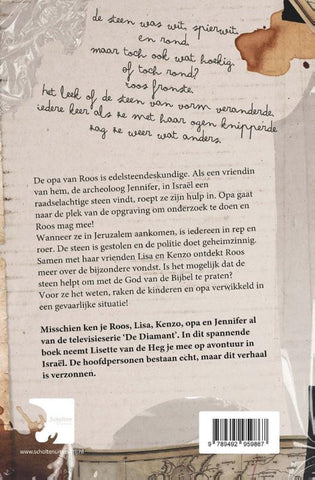 de steen was wit, spierwit
en rond.
maar toch ook wat hoekig.
of toch rond?
roos fronste.
het leek of de steen van vorm veranderde,
iedere keer als ze met haar ogen knipperde
zag ze weer wat anders.
De opa van Roos is edelsteendeskundige. Als een vriendin
van hem, de archeoloog Jennifer, in Israël een
raadselachtige steen vindt, roept ze zijn hulp in. Opa gaat
naar de plek van de opgraving om onderzoek te doen en
Roos mag mee!
Wanneer ze in Jeruzalem aankomen, is iedereen in rep en
roer. De steen is gestolen en de politie doet geheimzinnig.
Samen met haar vrienden Lisa en Kenzo ontdekt Roos
meer over de bijzondere vondst. Is het mogelijk dat de
steen helpt om met de God van de Bijbel te praten?
Voor ze het weten, raken de kinderen en opa verwikkeld in
een gevaarlijke situatie!
Misschien ken je Roos, Lisa, Kenzo, opa en Jennifer al
van de televisieserie 'De Diamant'. In dit spannende
boek neemt Lisette van de Heg je mee op avontuur in
Israël. De hoofdpersonen bestaan echt, maar dit verhaal
is verzonnen.
Scholten
9 789492 959867